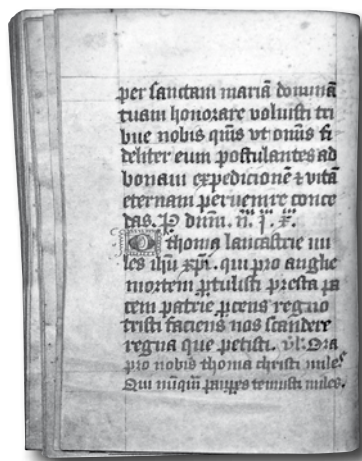 per sanctam mariā dominā
tuam honorare voluisti tri
bue nobis qūis vt om̄s fi
deliter eum postulantes ad
bonam expedicionē ⁊ vitā
eternam peruenire conce
das. P dnm̄. n̄. i. x̄.
O thoma lancastrie mi
les ihū xp̄i. qui pro anglie
mortem ꝑtulisti presta pa
cem patrie ꝑcens regno
tristi faciens nos scandere
regna que petisti. v̄l. Ora
pro nobis thoma christi miles
Qui nūq̄m pauꝑes temuisti miles.